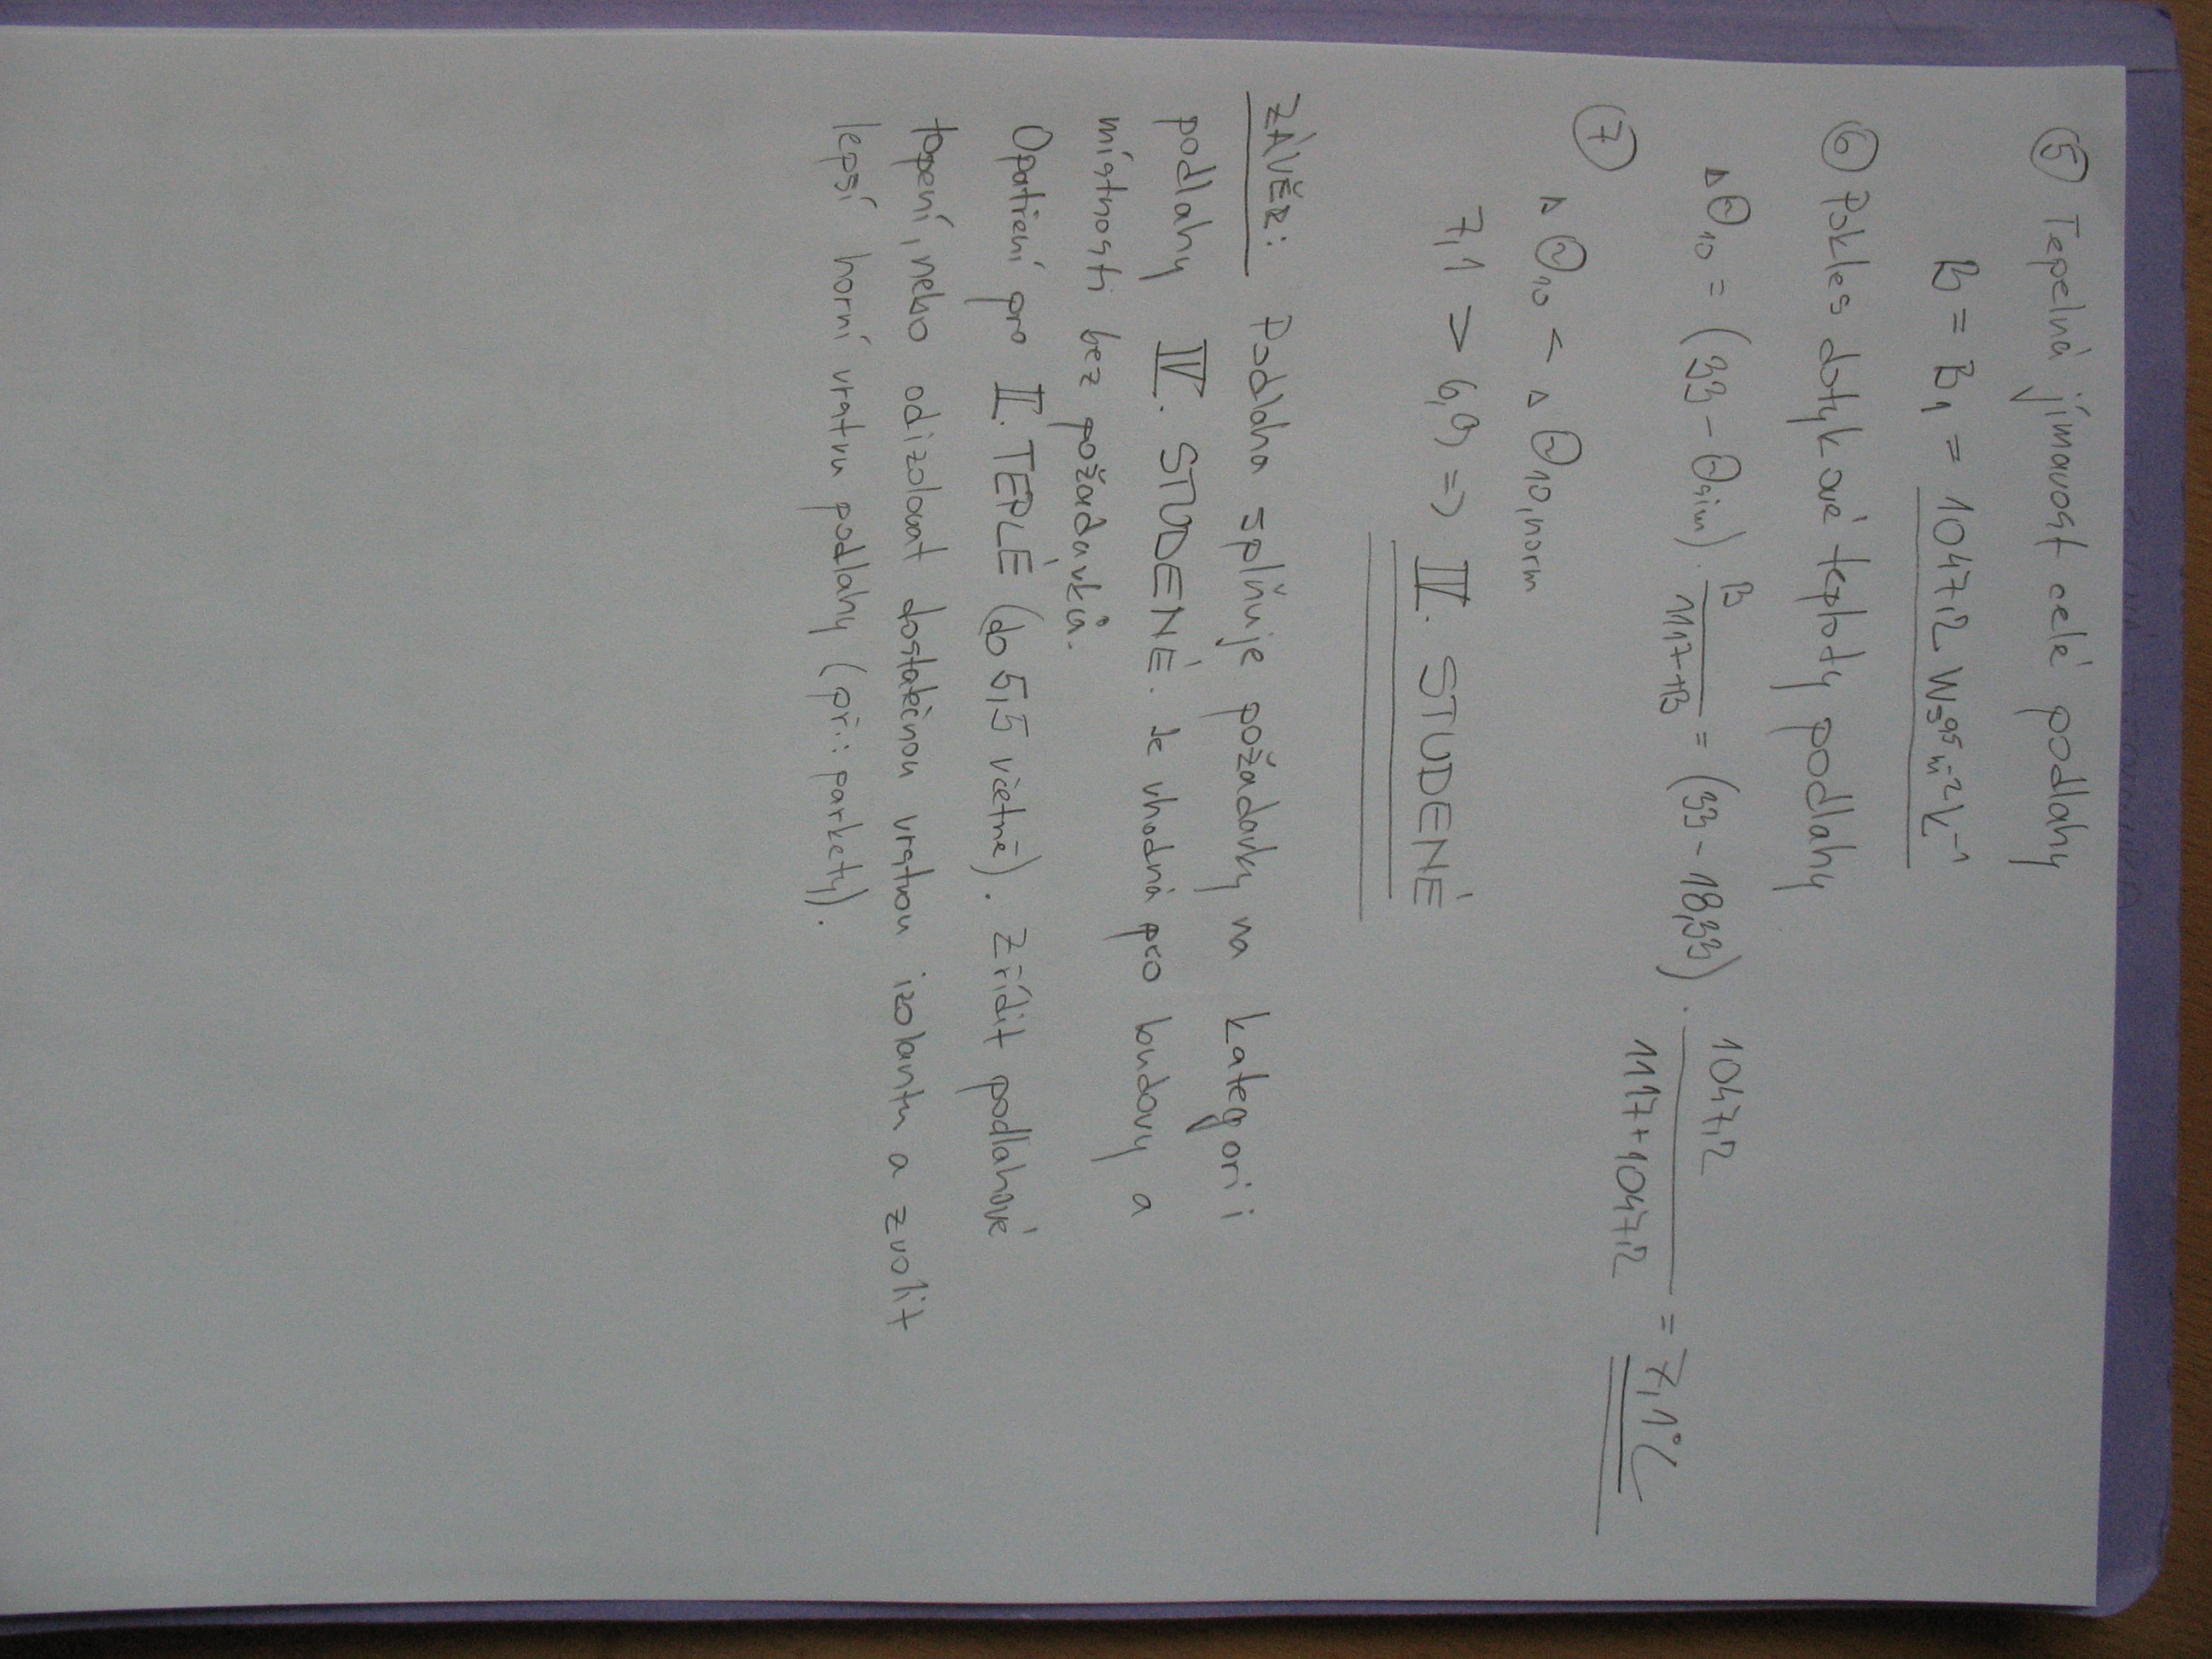 ⑤ Tepelná jímavost celé podlahy
B = B₁ = 1047,2 Ws⁰,⁵m⁻²K⁻¹
⑥ Pokles dotykové teploty podlahy
ΔΘ₁₀ = (33 - Θsim) · B / 1117+B = (33 - 18,33) · 1047,2 / 1117+1047,2 = 7,1°C
⑦ ΔΘ₁₀ < ΔΘ₁₀,norm
7,1 > 6,9 => IV. STUDENÉ
ZÁVĚR: Podlaha splňuje požadavky na kategorii
podlahy IV. STUDENÉ. Je vhodná pro budovy a
místnosti bez požadavků.
Opatření pro II. TEPLÉ (do 5,5 včetně). Zřídit podlahové
topení, nebo odizolovat dostatečnou vrstvou izolantu a zvolit
lepší horní vrstvu podlahy (př.: parkety).